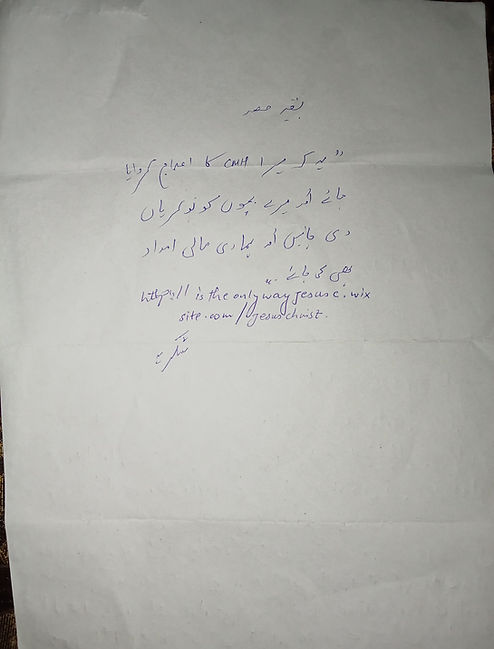 بقیہ حصہ
"یہ کہ میرا CMH کا اعلاج کروایا
جائے اور میرے بچوں کو نوکریاں
دی جائیں اور ہماری مالی امداد
بھی کی جائے۔"
https// is the only way jesus c. wix
site.com/jesuschrist.
شکریہ